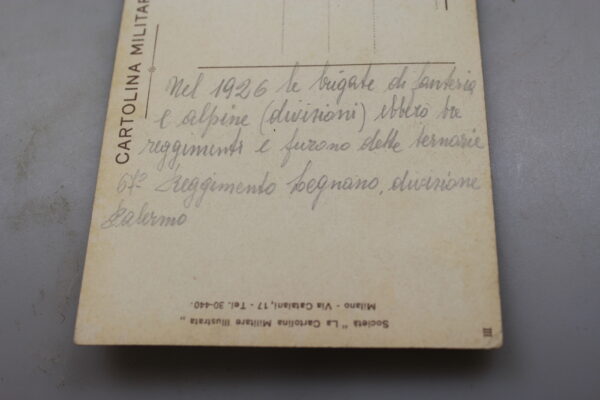 CARTOLINA MILITAR
Nel 1926 le brigate di fanteria
e alpine (divisioni) ebbero tre
reggimenti e furono dette ternarie
67º Reggimento Legnano, divisione
Palermo
Società "La Cartolina Militare Illustrata"
Milano - Via Catalani, 17 - Tel. 30-440.
III